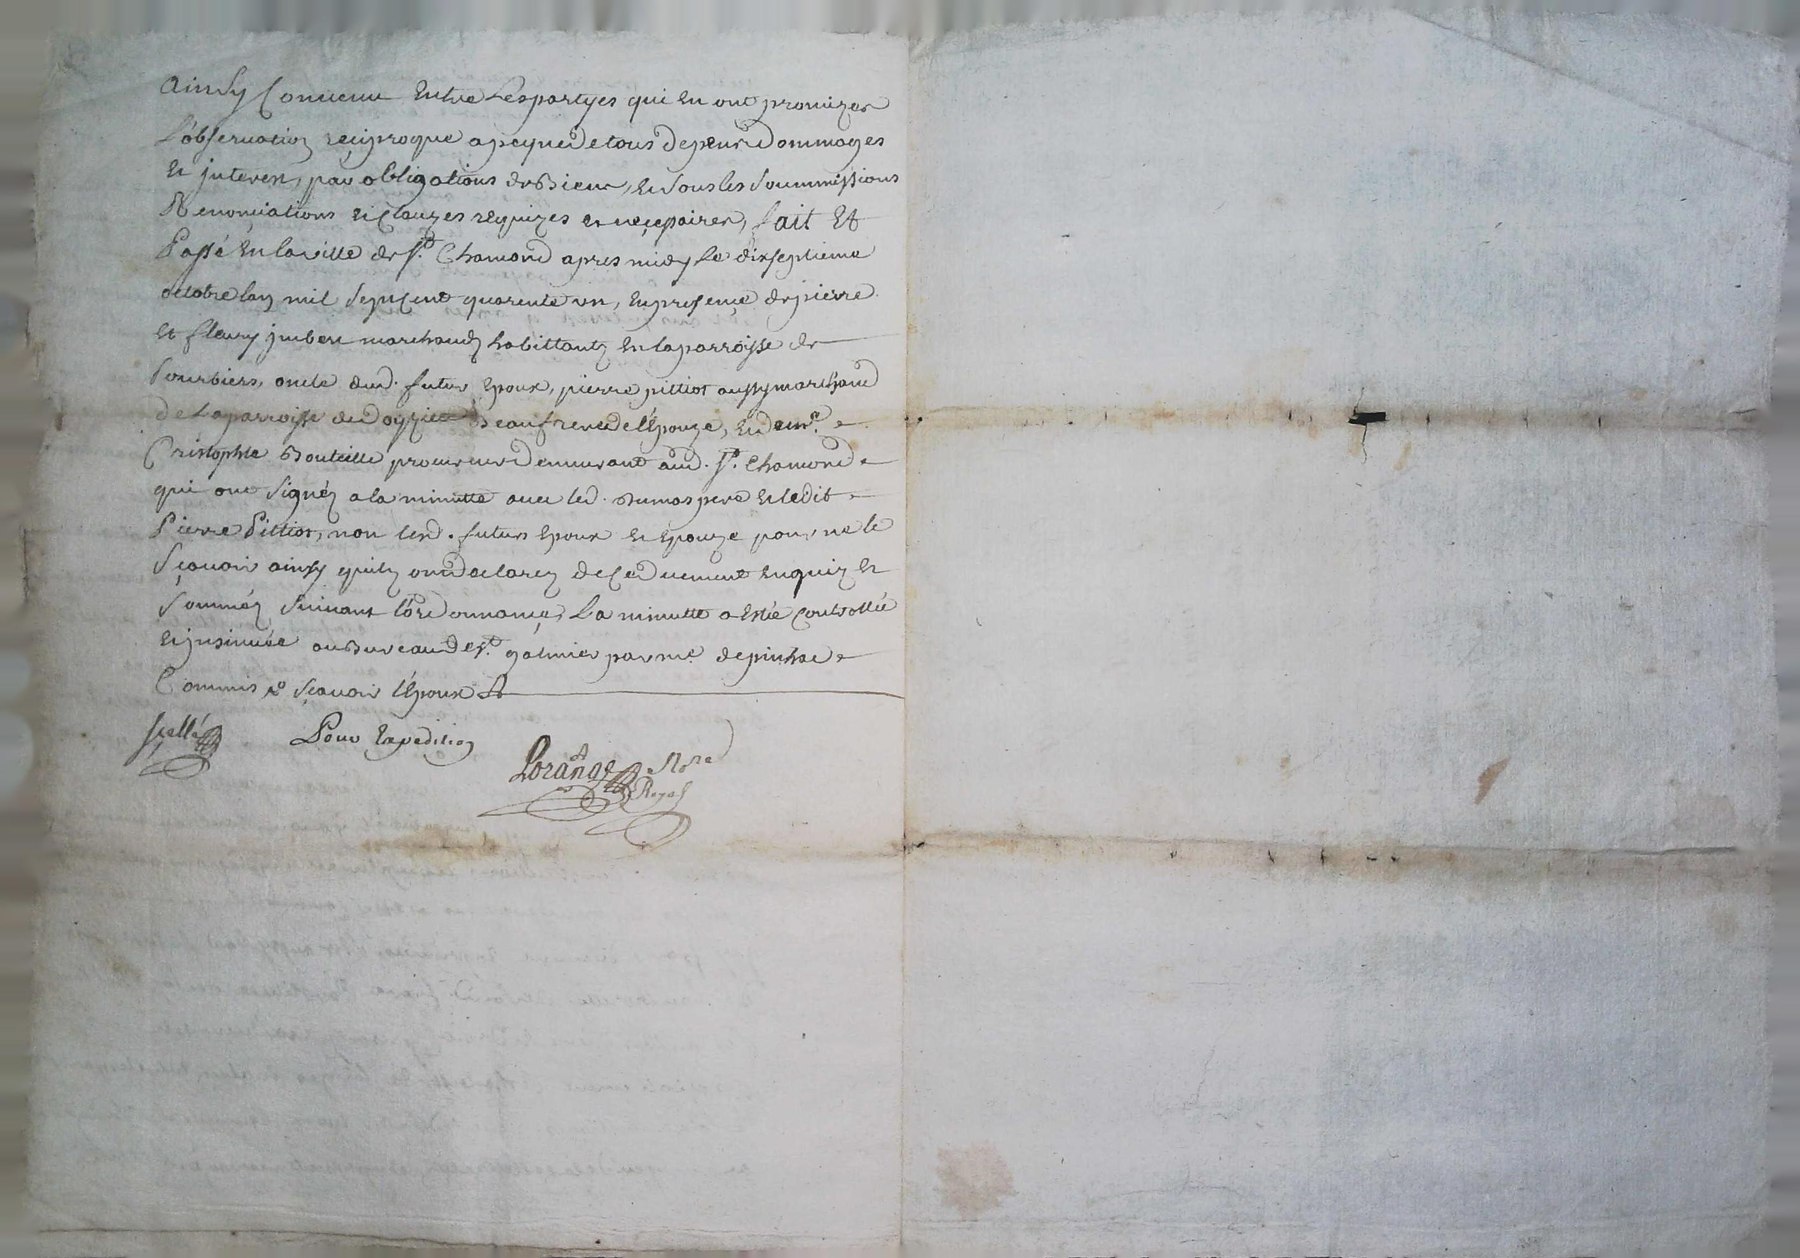 ainsy Convenu Entre Lespartyes qui En ont promizes
L'observation reciproque apeyne de tous depens Dommages
Et jnterest, par obligations de Biens, Et sous les soummissions
Renonciations Et Clauzes requizes et neçessaires, fait Et
Passé En la ville de St. Chamond apres midy Le dixseptieme
octobre lan mil sept cent quarente un, En presençe de pierre
Et fleury jmbert marchands habittants En la parroisse de
Sourbiers, oncle dud. futur Epoux, pierre pittiot aussy marchand
De La parroisse de Doyzieu Beaufrere de l'Epouze, Et de mre.
Cristophle Bouteille procureur demeurant aud. St. Chamond
qui ont signéz a la minutte avec led. Dumas pere Et ledit
Pierre Pittiot, non lesd. futurs Epoux et Epouze pour ne le
Sçavoir ainsy quils ont declarez de Ce duement Enquiz Et
Sommez Suivant L'ordonnançe, La minutte a Estée Controllée
Et jnsinuée au Bureau de St. galmier par me. depinhac
Commis Sçavoir L'Epoux
Scellé Pour Expedition
Lorange Nore
Royal